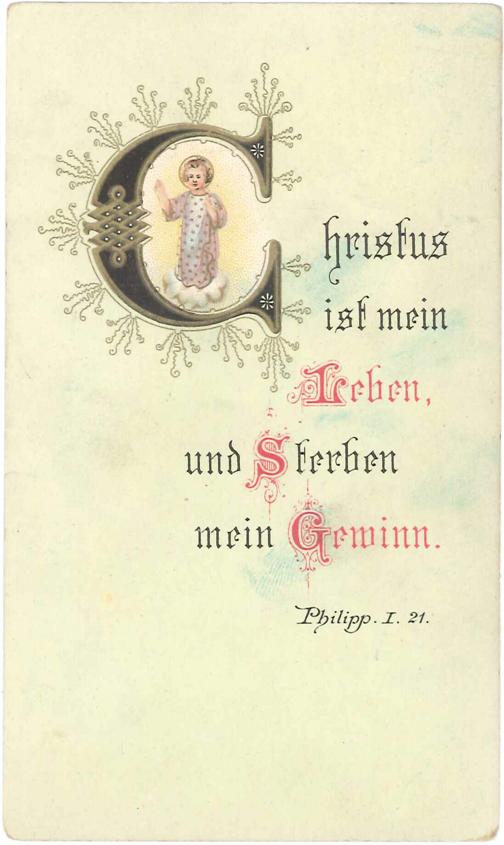 Christus
ist mein
Leben,
und Sterben
mein Gewinn.
Philipp. I. 21.